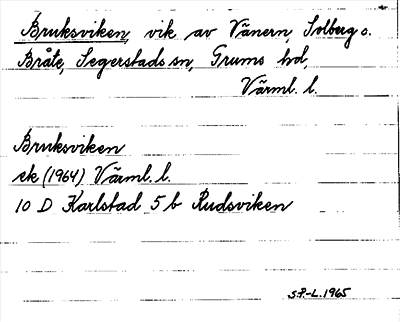 Bruksviken, vik av Vänern, Solberg o.
Bråte, Segerstads sn, Grums hd,
Värml. l.
Bruksviken
ek (1964) Värml. l.
10 D Karlstad 5 b Rudsviken
S.P.-L. 1965